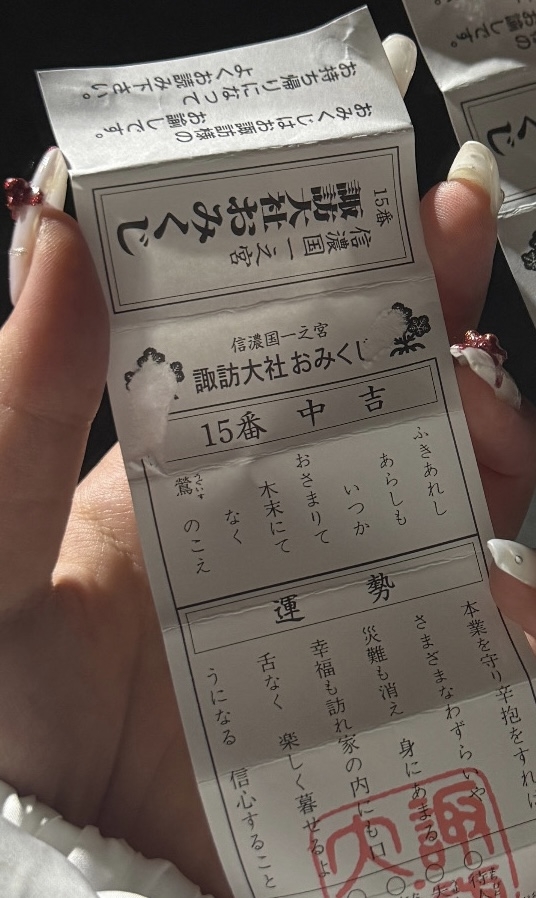 おみくじはお諏訪様の
お諭しです。
お持ち帰りになって
よくお読み下さい。
15番
信濃国一之宮
諏訪大社おみくじ
信濃国一之宮
諏訪大社おみくじ
15番 中吉
ふきあれし
あらしも
いつか
おさまりて
木末にて
なく
鶯のこえ
うぐいす
運勢
本業を守り辛抱をすれば
さまざまなわずらいや
災難も消え 身にあまる
幸福も訪れ家の内にも口
舌なく 楽しく暮せるよ
うになる 信心すること